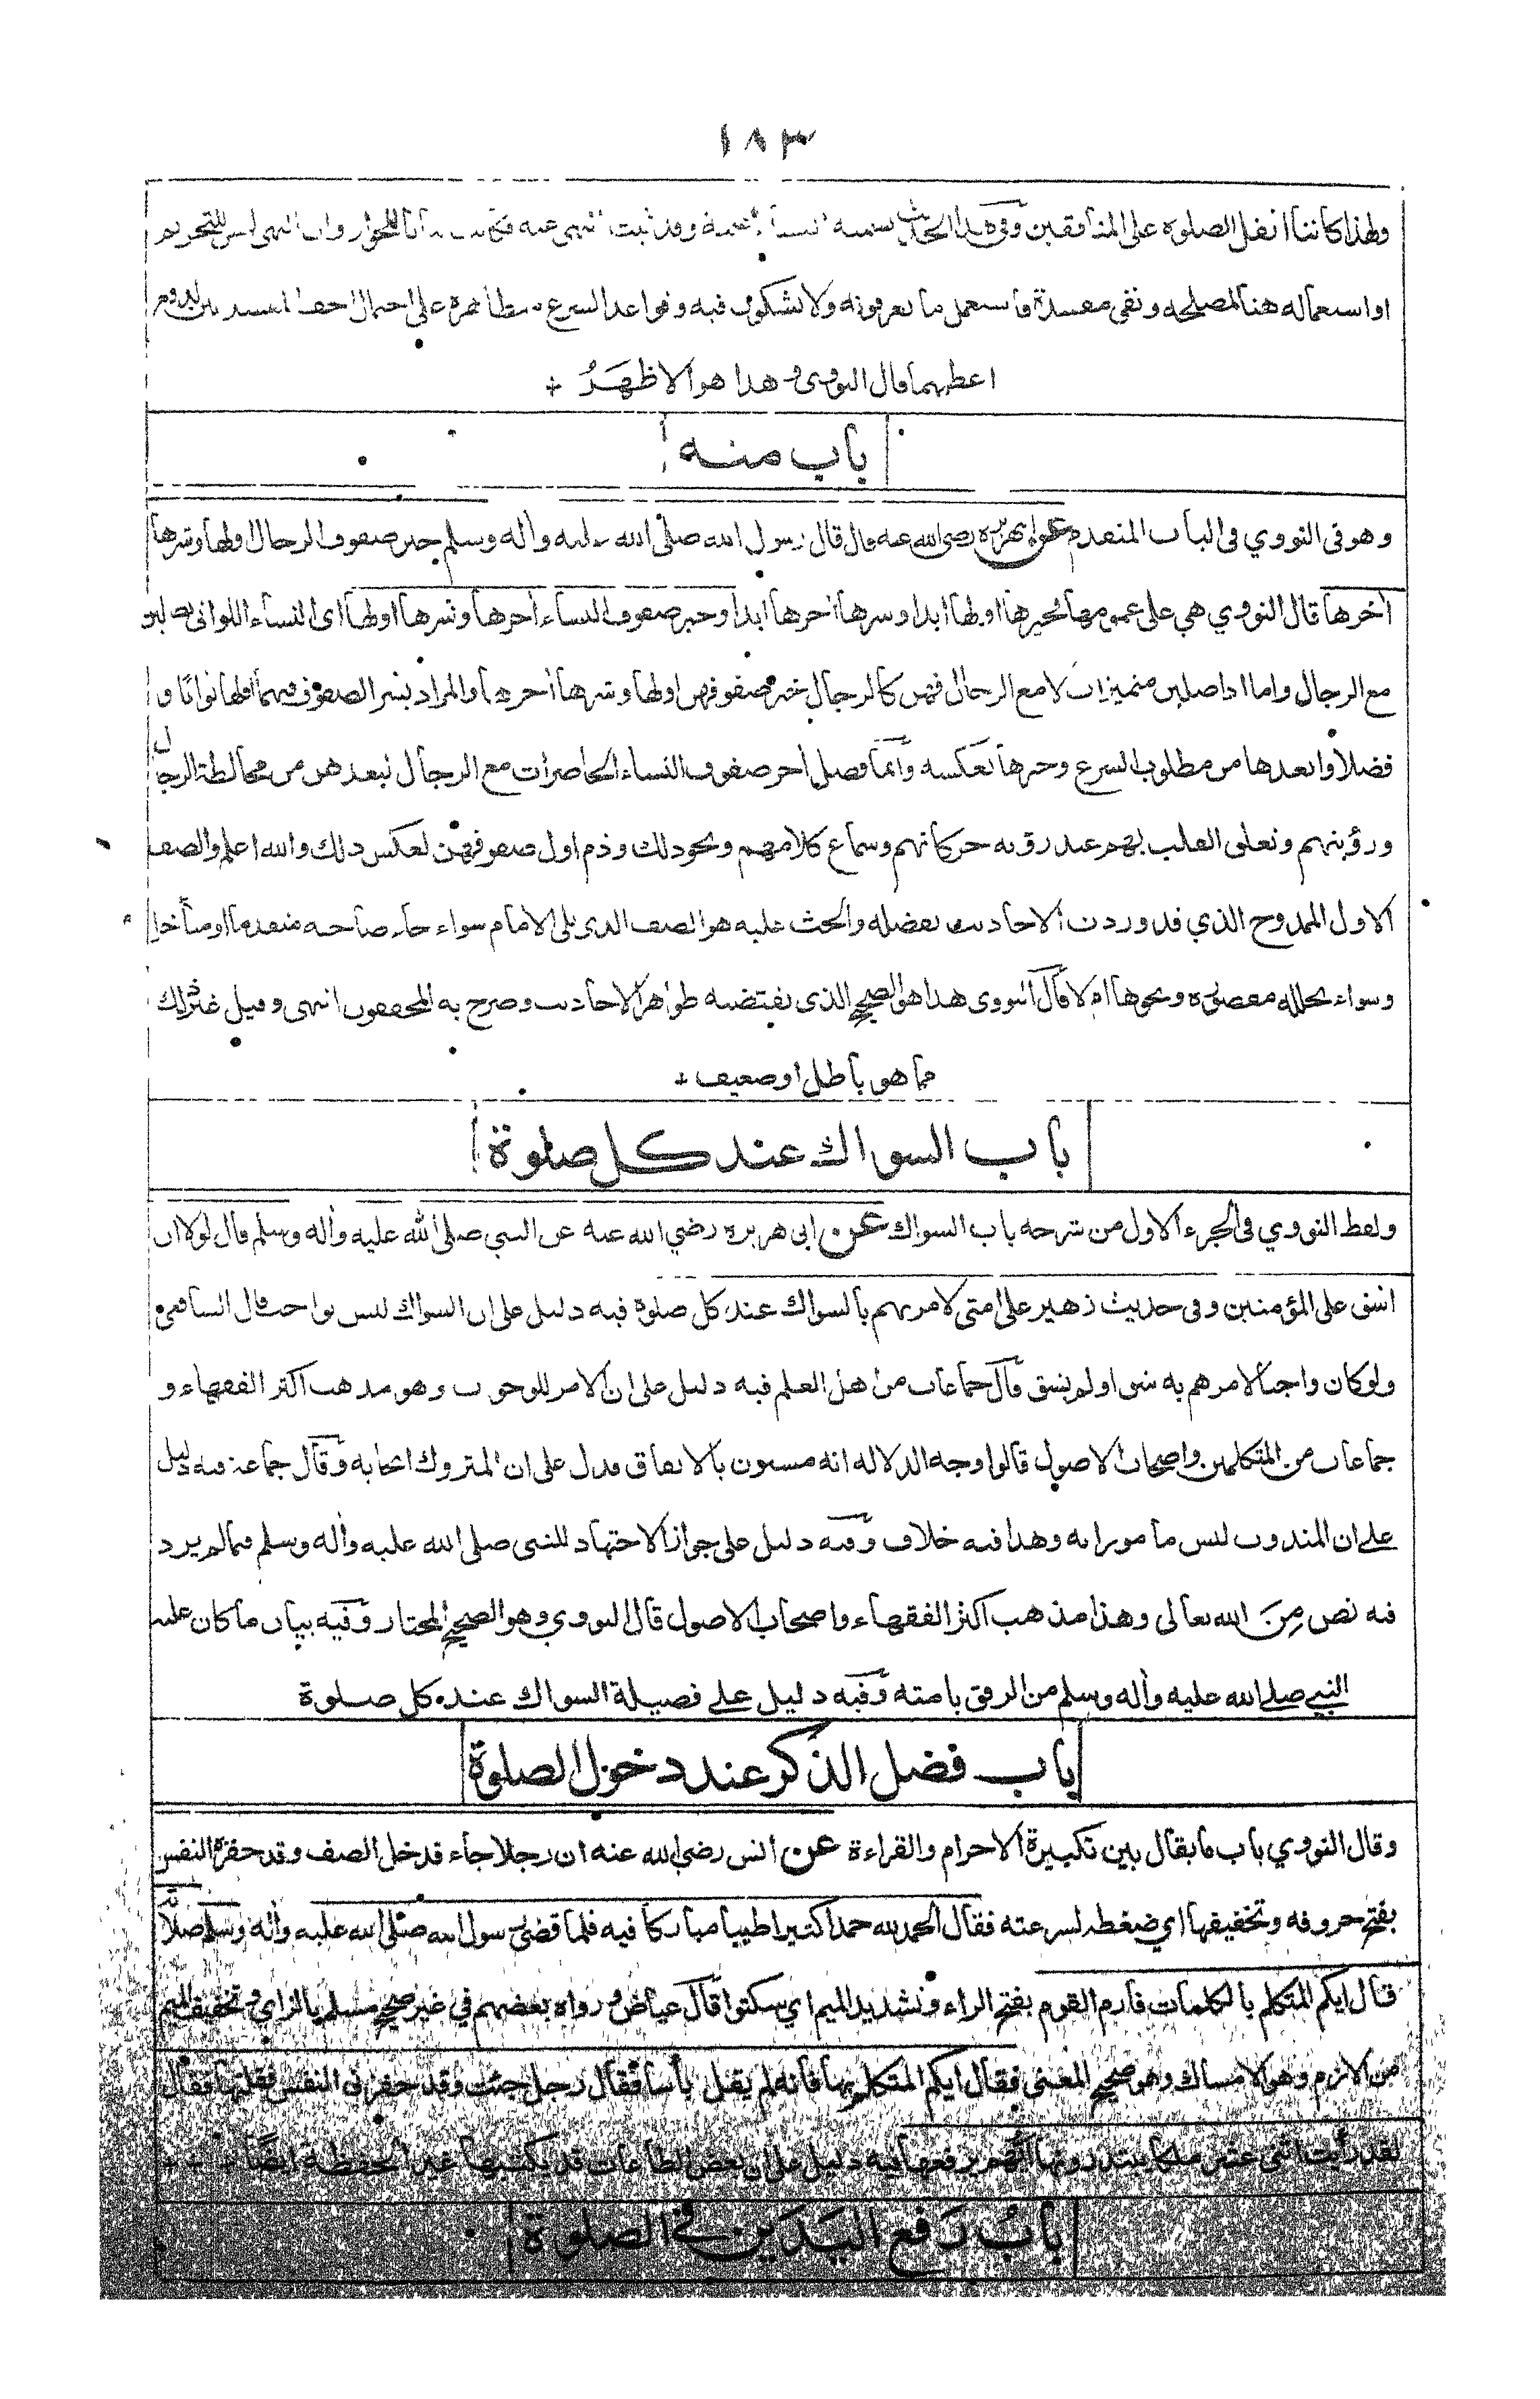 ١٨٣
ولهذا كانت اثقل الصلوة على المنافقين وفي هذا الحديث تسميته العشاء عتمة وقد ثبت النهي عنه بيانا للجواز وان النهي ليس للتحريم
او استعماله هنا لمصلحة ونفي مفسدة فاستعمل ما يعرفونه ولا يشكون فيه وقواعد الشرع متظاهرة على احتمال اخف المفسدتين لدفع
اعظمهما قال النووي وهذا هو الاظهر
باب منه
وهو في النووي في الباب المتقدم عن ابي هريرة رضي الله عنه قال قال رسول الله صلى الله عليه وأله وسلم خير صفوف الرجال اولها وشرها
أخرها قال النووي هي على عمومها فخيرها اولها ابدا وشرها أخرها ابدا وخير صفوف النساء أخرها وشرها اولها اي النساء اللواتي يصلين
مع الرجال واما اذا صلين متميزات لا مع الرجال فهن كالرجال خير صفوفهن اولها وشرها أخرها والمراد بشر الصفوف فيهما اقلها ثوابا و
فضلا وابعدها من مطلوب الشرع وخيرها بعكسه وانما فضل أخر صفوف النساء الحاضرات مع الرجال لبعدهن من مخالطة الرجال
ورؤيتهم وتعلق القلب بهم عند رؤية حركاتهم وسماع كلامهم ونحو ذلك وذم اول صفوفهن لعكس ذلك والله اعلم والصف
الاول الممدوح الذي قد وردت الاحاديث بفضله والحث عليه هو الصف الذي يلي الامام سواء جاء صاحبه متقدما او متأخرا
وسواء تخلله مقصورة ونحوها ام لا قال النووي هذا هو الصحيح الذي يقتضيه ظواهر الاحاديث وصرح به المحققون انتهى وقيل غير ذلك
مما هو باطل او ضعيف
باب السواك عند كل صلوة
ولفظ النووي في الجزء الاول من شرحه باب السواك عن ابي هريرة رضي الله عنه عن النبي صلى الله عليه وأله وسلم قال لولا ان
اشق على المؤمنين وفي حديث زهير على امتي لامرتهم بالسواك عند كل صلوة فيه دليل على ان السواك ليس بواجب قال الشافعي
ولو كان واجبا لامرهم به شق او لم يشق قال جماعات من اهل العلم فيه دليل على ان الامر للوجوب وهو مذهب اكثر الفقهاء و
جماعات من المتكلمين واصحاب الاصول قالوا وجه الدلالة انه مسنون بالاتفاق فدل على ان المتروك ايجابه وقال جماعة فيه دليل
على ان المندوب ليس مامورا به وهذا فيه خلاف وفيه دليل على جواز الاجتهاد للنبي صلى الله عليه وأله وسلم فيما لم يرد
فيه نص مِنَ الله تعالى وهذا مذهب اكثر الفقهاء واصحاب الاصول قال النووي وهو الصحيح المختار وفيه بيان ما كان عليه
النبي صلى الله عليه وأله وسلم من الرفق بامته وفيه دليل على فضيلة السواك عند كل صلوة
باب فضل الذكر عند دخول الصلوة
وقال النووي باب ما يقال بين تكبيرة الاحرام والقراءة عن انس رضي الله عنه ان رجلا جاء فدخل الصف وقد حفزه النفس
بفتح حروفه وتخفيفها اي ضغطه لسرعته فقال الحمد لله حمدا كثيرا طيبا مباركا فيه فلما قضى رسول الله صلى الله عليه وأله وسلم صلاته
قال ايكم المتكلم بالكلمات فارم القوم بفتح الراء وتشديد الميم اي سكتوا قال عياض ورواه بعضهم في غير صحيح مسلم بالزاي وتخفيف الميم
من الازم وهو الامساك وهو صحيح المعنى فقال ايكم المتكلم بها فانه لم يقل بأسا فقال رجل جئت وقد حفزني النفس فقلتها فقال
لقد رأيت اثني عشر ملكا يبتدرونها ايهم يرفعها فيه دليل على ان بعض الطاعات قد يكتبها غير الحفظة ايضا
باب رفع اليدين في الصلوة